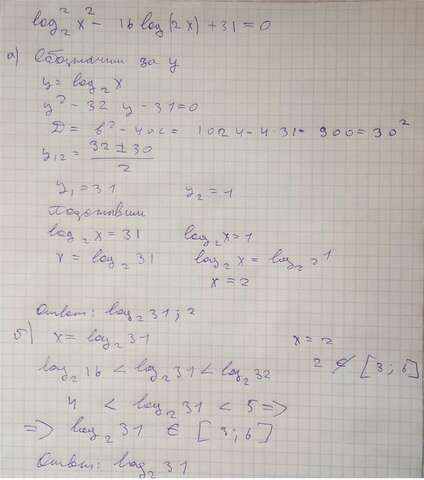 log₂² x² - 16 log₂(2x) + 31 = 0
а) Обозначим за y
y = log₂ x
y² - 32 y - 31 = 0
D = b² - 4ac = 1024 - 4·31 = 900 = 30²
y₁₂ = (32 ± 30)/2
y₁ = 31 y₂ = 1
Подставим
log₂ x = 31 log₂ x = 1
x = log₂ 31 log₂ x = log₂ 2¹
x = 2
Ответ: log₂ 31; 2
б) x = log₂ 31 x = 2
log₂ 16 < log₂ 31 < log₂ 32 2 ∉ [3; 6]
4 < log₂ 31 < 5 =>
=> log₂ 31 ∈ [3; 6]
Ответ: log₂ 31